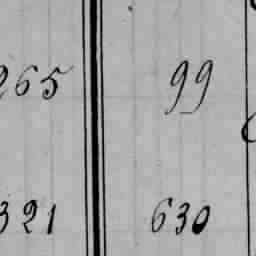 265 99
321 630